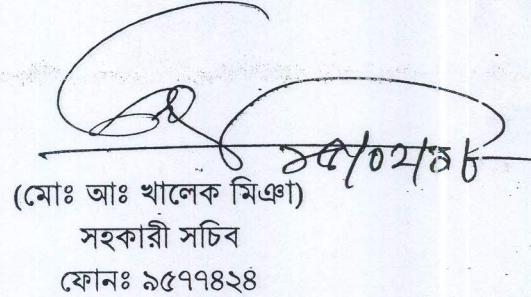 ১৫/০২/১৮
(মোঃ আঃ খালেক মিঞা)
সহকারী সচিব
ফোনঃ ৯৫৭৭৪২৪